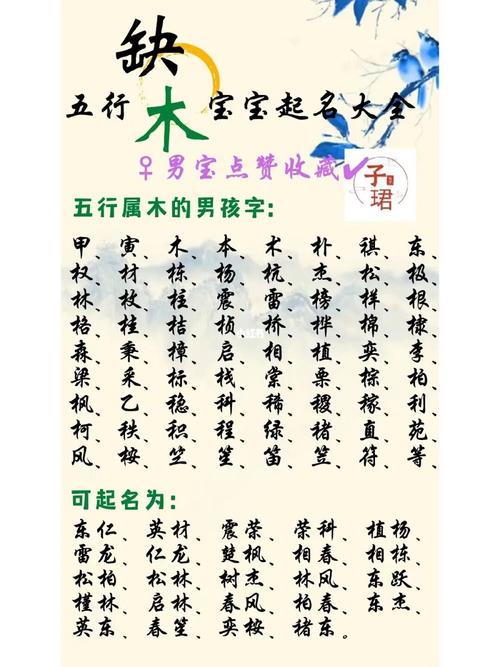 缺
五行木宝宝起名大全
♀男宝点赞收藏✔
子珺
五行属木的男孩字:
甲、寅、木、本、术、朴、祺、东、
权、材、栋、杨、杭、杰、松、极、
林、枚、柱、震、雷、榜、样、根、
格、桂、桔、桢、桥、桦、棉、棣、
森、秉、樟、启、相、植、奕、李、
梁、采、标、栈、棠、栗、棕、柏、
枫、乙、稳、科、稀、稷、稼、利、
柯、秩、积、程、绿、褚、直、苑、
风、桉、竺、笙、笛、笠、符、等、
可起名为:
东仁、英材、震荣、荣科、植杨、
雷龙、仁龙、楚枫、相春、相栋、
松柏、松林、树杰、林风、东跃、
槿林、启林、春风、柏春、东杰、
英东、春笙、奕桉、褚东。